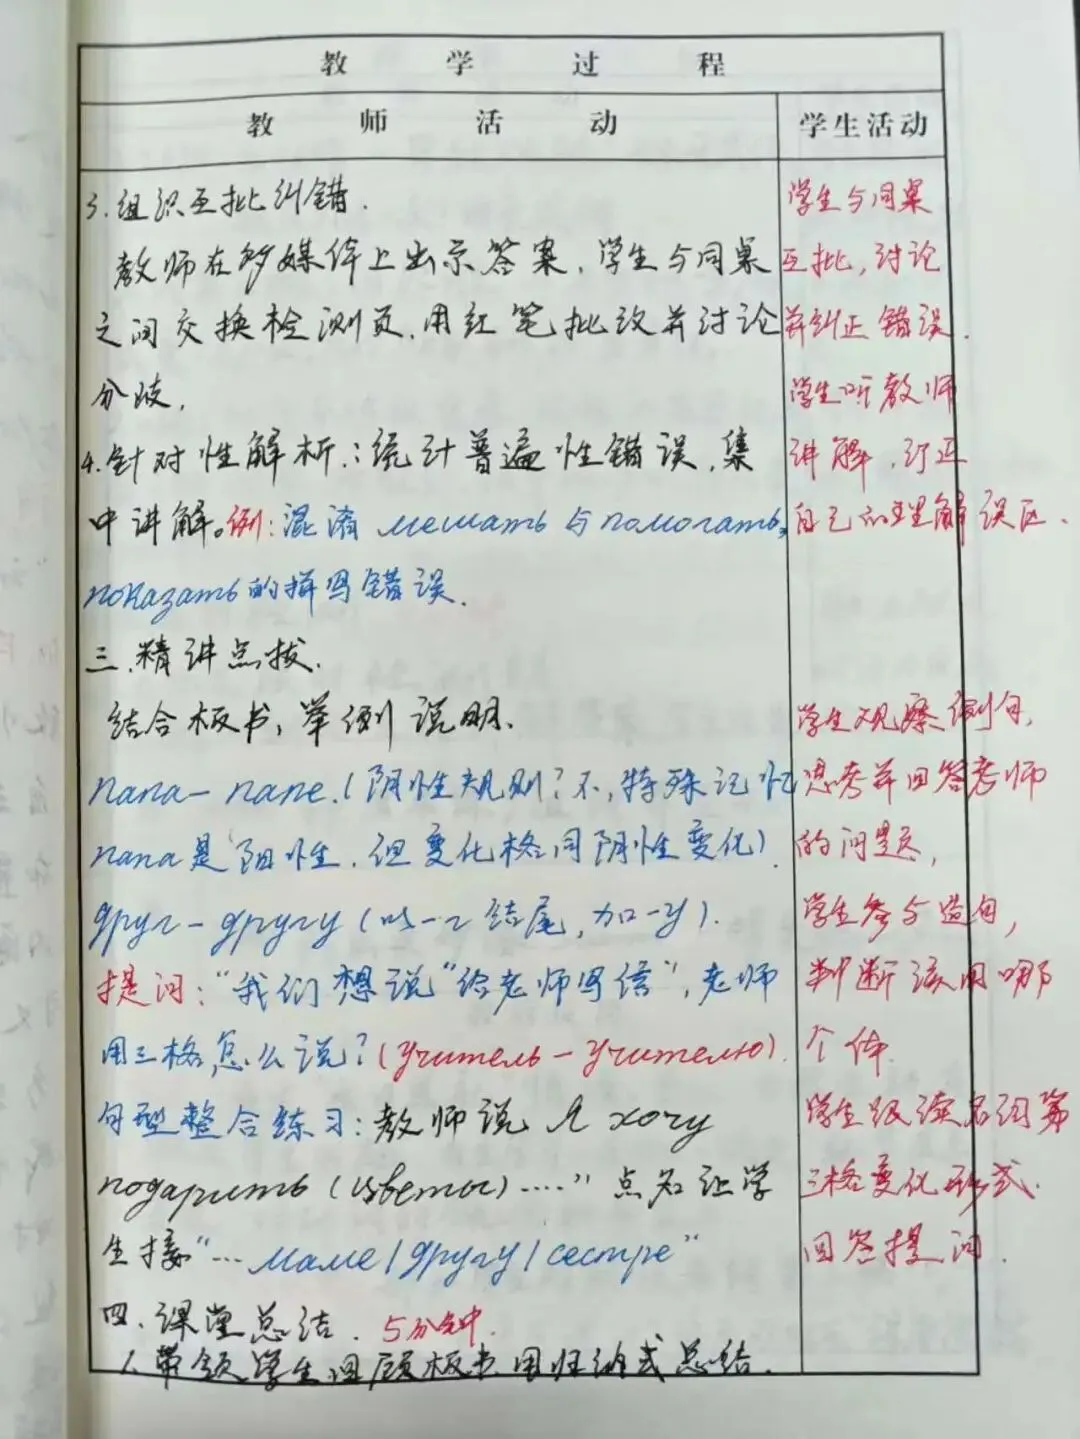 教学过程
教师活动
学生活动
3.组织互批纠错.
教师在多媒体上出示答案,学生与同桌
之间交换检测页,用红笔批改并讨论
分歧,
4.针对性解析:统计普遍性错误,集
中讲解。例:混淆 мешать 与 помогать,
показать的拼写错误.
三.精讲点拔.
结合板书,举例说明.
папа— папе.(阴性规则?不,特殊记忆
папа是阳性.但变化格同阴性变化).
друг-другу(以-г结尾,加-у).
提问:“我们想说“给老师写信”,老师
用三格怎么说?(учитель-учителю).
句型整合练习:教师说 Я хочу
подарить (цветы)....” 点名让学
生接“... маме/другу/сестре”
四.课堂总结. 5分钟.
1.带领学生回顾板书.用归纳式总结.
学生与同桌
互批,讨论
并纠正错误.
学生听教师
讲解,订正
自己的理解误区.
学生观察例句,
思考并回答老师
的问题,
学生参与造句,
判断该用哪
个体.
学生 读名词第
三格变化形式.
回答提问.